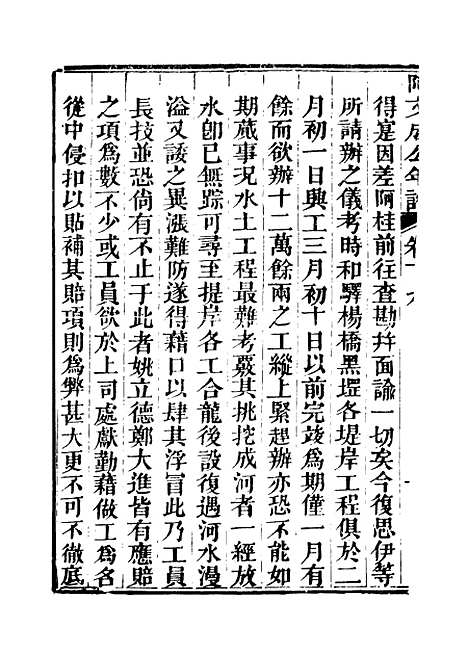 阿文成公年譜 卷十六
得寔因差阿桂前往查勘幷面諭一切矣今復思伊等
所請辦之儀考時和驛楊橋黑堽各堤岸工程俱於二
月初一日興工三月初十日以前完竣為期僅一月有
餘而欲辦十二萬餘兩之工縱上緊趕辦亦恐不能如
期蕆事況水土工程最難考覈其挑挖成河者一經放
水卽已無踪可尋至提岸各工合龍後設復遇河水漫
溢又諉之異漲難防遂得藉口以肆其浮冒此乃工員
長技並恐倘有不止于此者姚立德鄭大進皆有應賠
之項為數不少或工員欲於上司處獻勤藉做工為名
從中侵扣以貼補其賠項則為弊甚大更不可不徹底